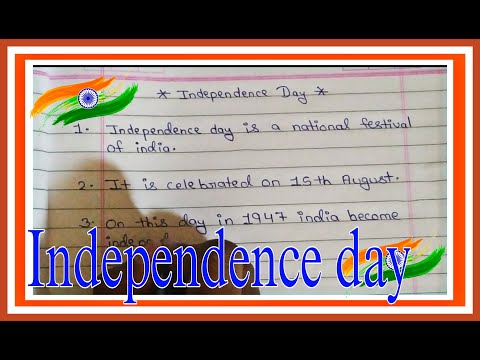 * Independence Day *
1. Independence day is a national festival
of india.
2. It is celebrated on 15th August.
3. On this day in 1947 india become
Independence day